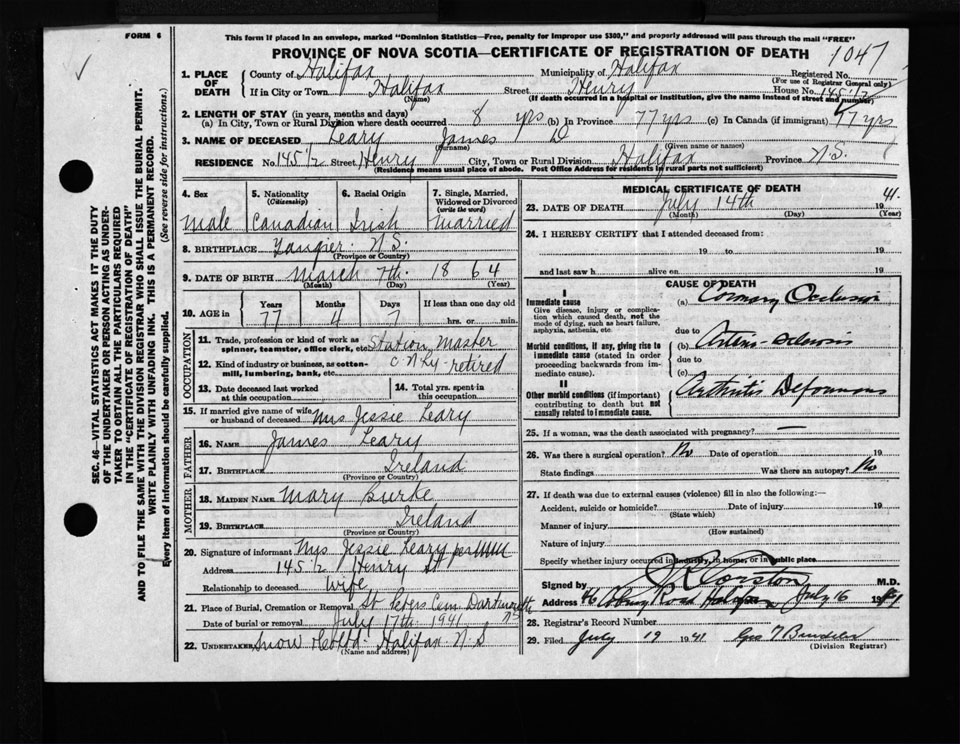 FORM 6
This form if placed in an envelope, marked "Dominion Statistics—Free, penalty for improper use $300," and properly addressed will pass through the mail "FREE"
PROVINCE OF NOVA SCOTIA—CERTIFICATE OF REGISTRATION OF DEATH
1047
1. PLACE OF DEATH
County of Halifax
Municipality of Halifax
Registered No.
(For use of Registrar General only)
If in City or Town Halifax Street Henry House No. 145 1/2
(Name) (If death occurred in a hospital or institution, give the name instead of street and number)
2. LENGTH OF STAY (in years, months and days)
(a) In City, Town or Rural Division where death occurred 8 yrs (b) In Province 77 yrs (c) In Canada (if immigrant) 77 yrs
3. NAME OF DECEASED Leary James D
(Surname) (Given name or names)
RESIDENCE No. 145 1/2 Street Henry City, Town or Rural Division Halifax Province N.S.
(Residence means usual place of abode. Post Office Address for residents in rural parts not sufficient)
4. Sex
Male
5. Nationality
(Citizenship)
Canadian
6. Racial Origin
Irish
7. Single, Married, Widowed or Divorced
(write the word)
Married
8. BIRTHPLACE Tangier N.S.
(Province or Country)
9. DATE OF BIRTH March 7th 1864
(Month) (Day) (Year)
10. AGE in
Years 77
Months 4
Days 7
If less than one day old
hrs. or min.
OCCUPATION
11. Trade, profession or kind of work as spinner, teamster, office clerk, etc. Station Master
12. Kind of industry or business, as cotton-mill, lumbering, bank, etc. C N Ry - retired
13. Date deceased last worked at this occupation
14. Total yrs. spent in this occupation
15. If married give name of wife or husband of deceased Mrs Jessie Leary
FATHER
16. NAME James Leary
17. BIRTHPLACE Ireland
(Province or Country)
MOTHER
18. MAIDEN NAME Mary Burke
19. BIRTHPLACE Ireland
(Province or Country)
20. Signature of informant Mrs Jessie Leary per
Address 145 1/2 Henry St
Relationship to deceased Wife
21. Place of Burial, Cremation or Removal St Peters Cem Dartmouth N S
Date of burial or removal July 17th 1941
22. UNDERTAKER Snow & Co Ltd. Halifax N.S
(Name and address)
MEDICAL CERTIFICATE OF DEATH
23. DATE OF DEATH July 14th 1941
(Month) (Day) (Year)
24. I HEREBY CERTIFY that I attended deceased from:
19 to 19
and last saw h alive on 19
CAUSE OF DEATH
I
Immediate cause
Give disease, injury or complication which caused death, not the mode of dying, such as heart failure, asphyxia, asthenia, etc.
(a) Coronary Occlusion
due to
Morbid conditions, if any, giving rise to immediate cause (stated in order proceeding backwards from immediate cause).
(b) Arterio-Sclerosis
due to
(c)
II
Other morbid conditions (if important) contributing to death but not causally related to immediate cause.
Arthritis Deformans
25. If a woman, was the death associated with pregnancy? —
26. Was there a surgical operation? No Date of operation 19
State findings Was there an autopsy? No
27. If death was due to external causes (violence) fill in also the following:—
Accident, suicide or homicide? Date of injury 19
(State which)
Manner of injury
(How sustained)
Nature of injury
Specify whether injury occurred in industry, in home, or in public place
Signed by J R Corston M.D.
Address 46 Coburg Road Halifax July 16 1941
28. Registrar's Record Number
29. Filed July 19 1941 Geo
(Division Registrar)
SEC. 46—VITAL STATISTICS ACT MAKES IT THE DUTY
OF THE UNDERTAKER OR PERSON ACTING AS UNDER-
TAKER TO OBTAIN ALL THE PARTICULARS REQUIRED
IN THE "CERTIFICATE OF REGISTRATION OF DEATH"
AND TO FILE THE SAME WITH THE DIVISION REGISTRAR WHO SHALL ISSUE THE BURIAL PERMIT.
WRITE PLAINLY WITH UNFADING INK. THIS IS A PERMANENT RECORD.
Every item of information should be carefully supplied. (See reverse side for instructions.)